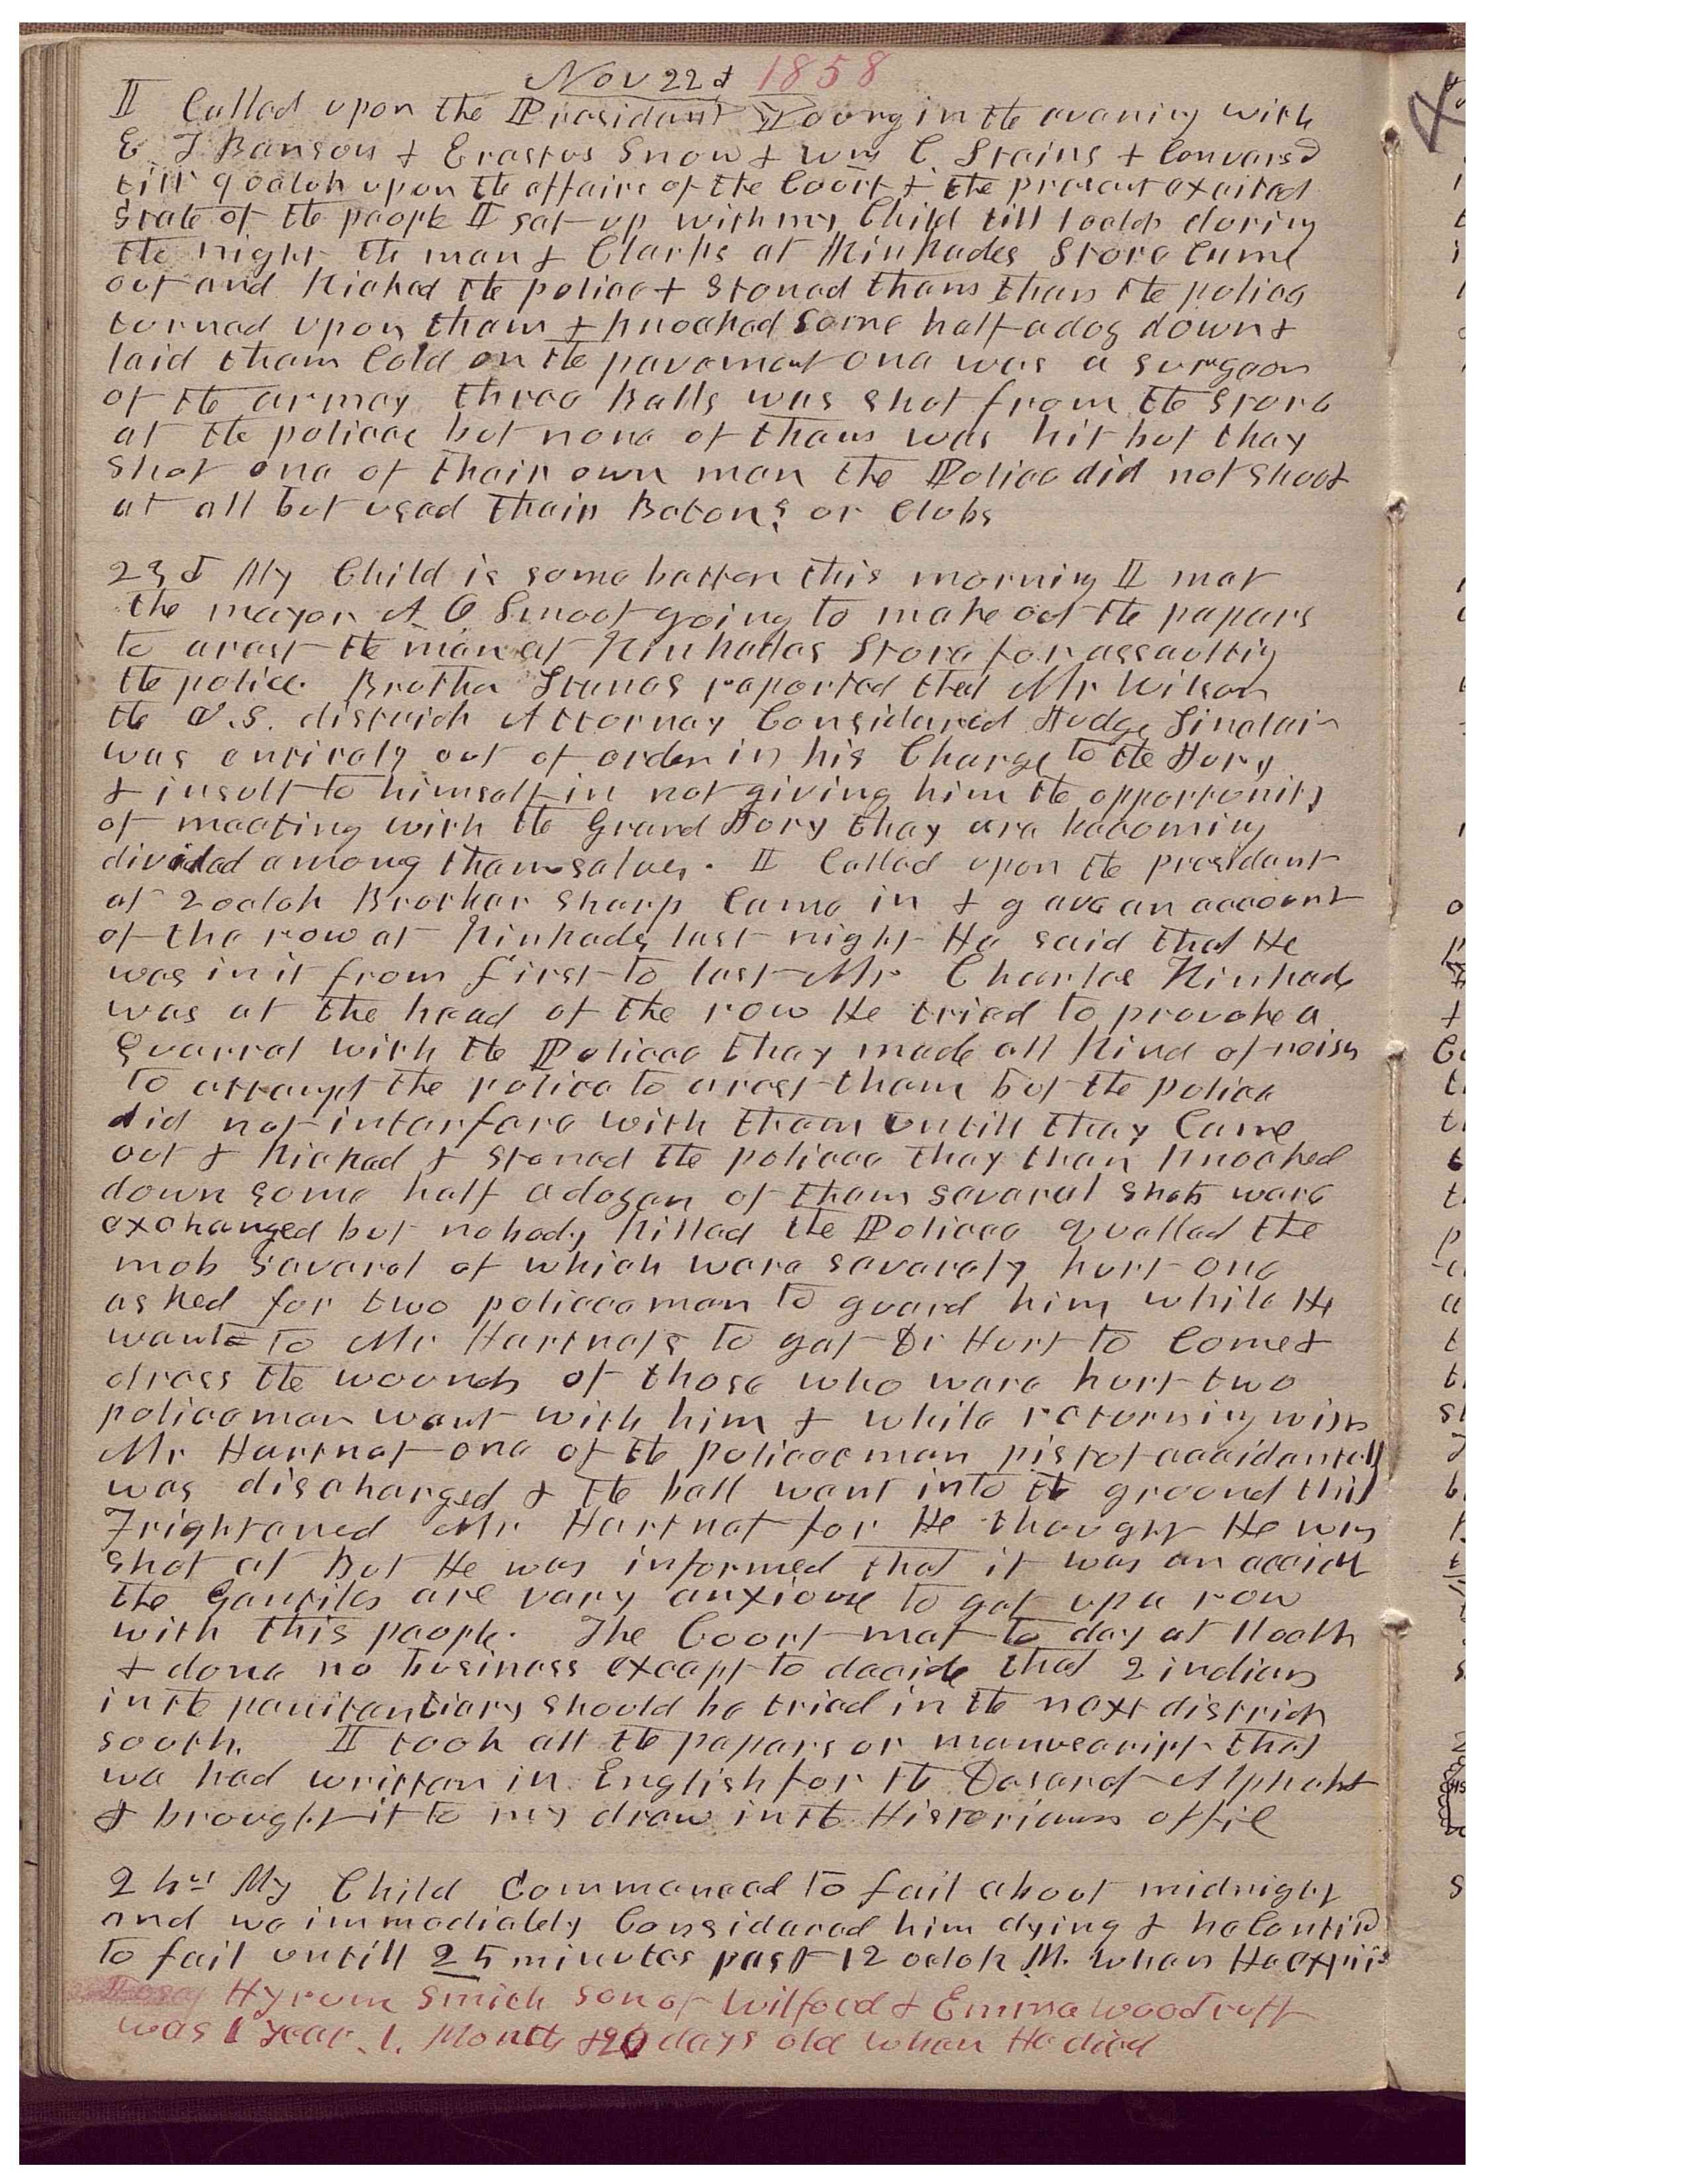 Nov 22d 1858
I Called upon the President Young in the evening with
E T Benson & Erastus Snow & Wm C. Stains & Conversd
till 9 oclok upon the affairs of the Court & the present excited
State of the people I sat up with my Child till 1 oclok during
the night the men & Clarks at Kinkades Store came
out and Kicked the police & Stoned them then the police
turned upon them & knocked some half a doz down &
laid them Cold on the pavement one was a surgeon
of the armey three Balls was shot from the store
at the policee but none of them was hit but they
shot one of their own men the Police did not shoot
at all but used their Batons or Clubs
23d My Child is some better this morning I met
the mayor A O Smoot going to make out the papers
to arest the men at Kinkades Store for assaulting
the police. Brother Stanes reported that Mr Wilson
the U.S. district Attorney Considered Judge Sinclair
was entirely out of order in his Charge to the Jury
& insult to himself in not giving him the opportunity
of meeting with the Grand Jury they are becoming
divided among themselves. I Called upon the president
at 2 oclok Brother Sharp Came in & gave an account
of the row at Kinkads last night He said that He
was in it from first to last Mr Charles Kinkade
was at the head of the row He tried to provoke a
Quarrel with the Policee they made all Kind of noise
to attempt the police to arest them but the police
did not interfere with them untill they Came
out & Kicked & stoned the policee they then Knocked
down some half a dozen of them several shots were
exchanged but nobody Killed the Policee quelled the
mob several of which were severely hurt one
asked for two policeemen to guard him while He
went to Mr Hartnets to get Dr Hurt to Come &
dress the wounds of those who were hurt two
policeemen went with him & while returning with
Mr Hartnet one of the policeemen pistol accidentally
was discharged & the ball went into the ground this
Frightened Mr Hartnet for He thought He was
shot at But He was informed that it was an accidt
the Gentiles are very anxious to get up a row
with this people. The Court met to day at 11 oclk
& done no business except to decide that 2 indians
in the penitentiary should be tried in the next district
south. I took all the papers or manuscript that
we had written in English for the Deseret Alphabet
& brought it to my draw in the Historians offic
24th My Child Commenced to fail about midnight
and we immediately Considered him dying & he Continud
to fail untill 25 minutes past 12 oclok M. when He expired
Hyrum Smith son of Wilford & Emma Woodruff
was 1 Year. 1. Month & 20 days old when He died